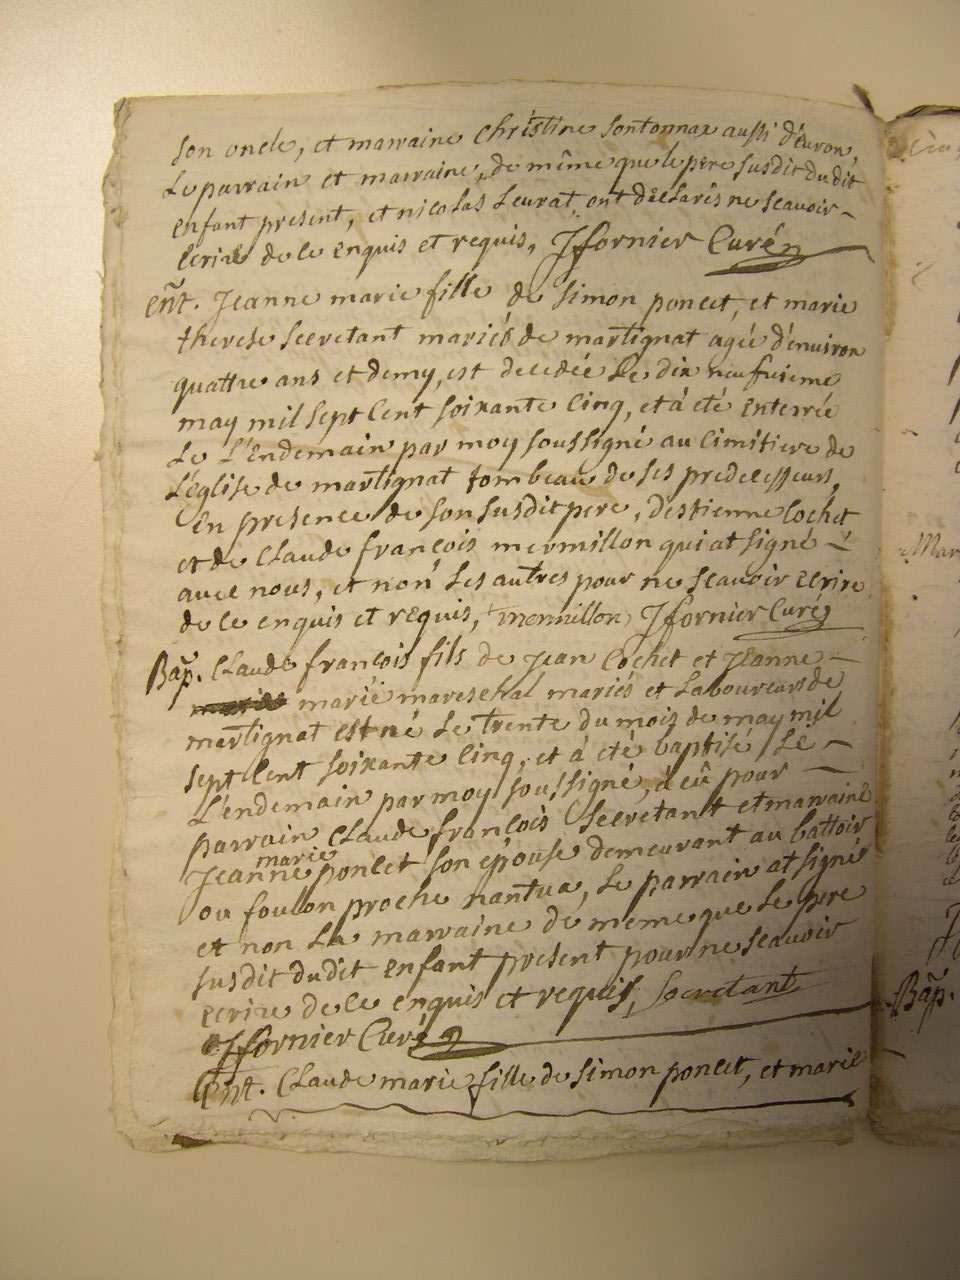 son oncle, et marraine christine sontonnax aussi d'évron,
Le parrain et marraine, de même que le pere susdit du dit
enfant present, et nicolas Levrat, ont déclarés ne scavoir
ecrire de ce enquis et requis, Jffornier Curé
Ent. Jeanne marie fille de simon poncet, et marie
therese secretant mariés de martignat agée d'environ
quattre ans et demy, est decedée Le dix neufvieme
may mil sept cent soixante cinq, et à eté enterrée
Le L'endemain par moy soussigné au cimitiere de
L'église de martignat tombeau de ses predecesseurs,
En presence de son susdit pere, d'estienne Cochet
et de Claude françois mermillon qui at signé
avec nous, et non Les autres pour ne scavoir ecrire
de ce enquis et requis, mermillon Jffornier Curé
Bap. Claude françois fils de Jean Cochet et Jeanne
marie mareschal mariés et Laboureurs de
martignat est né Le trente du mois de may mil
sept cent soixante cinq, et à eté baptisé Le
L'endemain par moy soussigné, à eû pour
parrain Claude françois secretant et marraine
Jeanne marie poncet son epouse demeurant au battoir
ou foulon proche nantua, Le parrain at signé
et non La marraine de meme que Le pere
susdit du dit enfant present pour ne scavoir
ecrire de ce enquis et requis, secretant
Jffornier Curé
Ent. Claude marie fille de simon poncet, et marie
Mar
Bap.